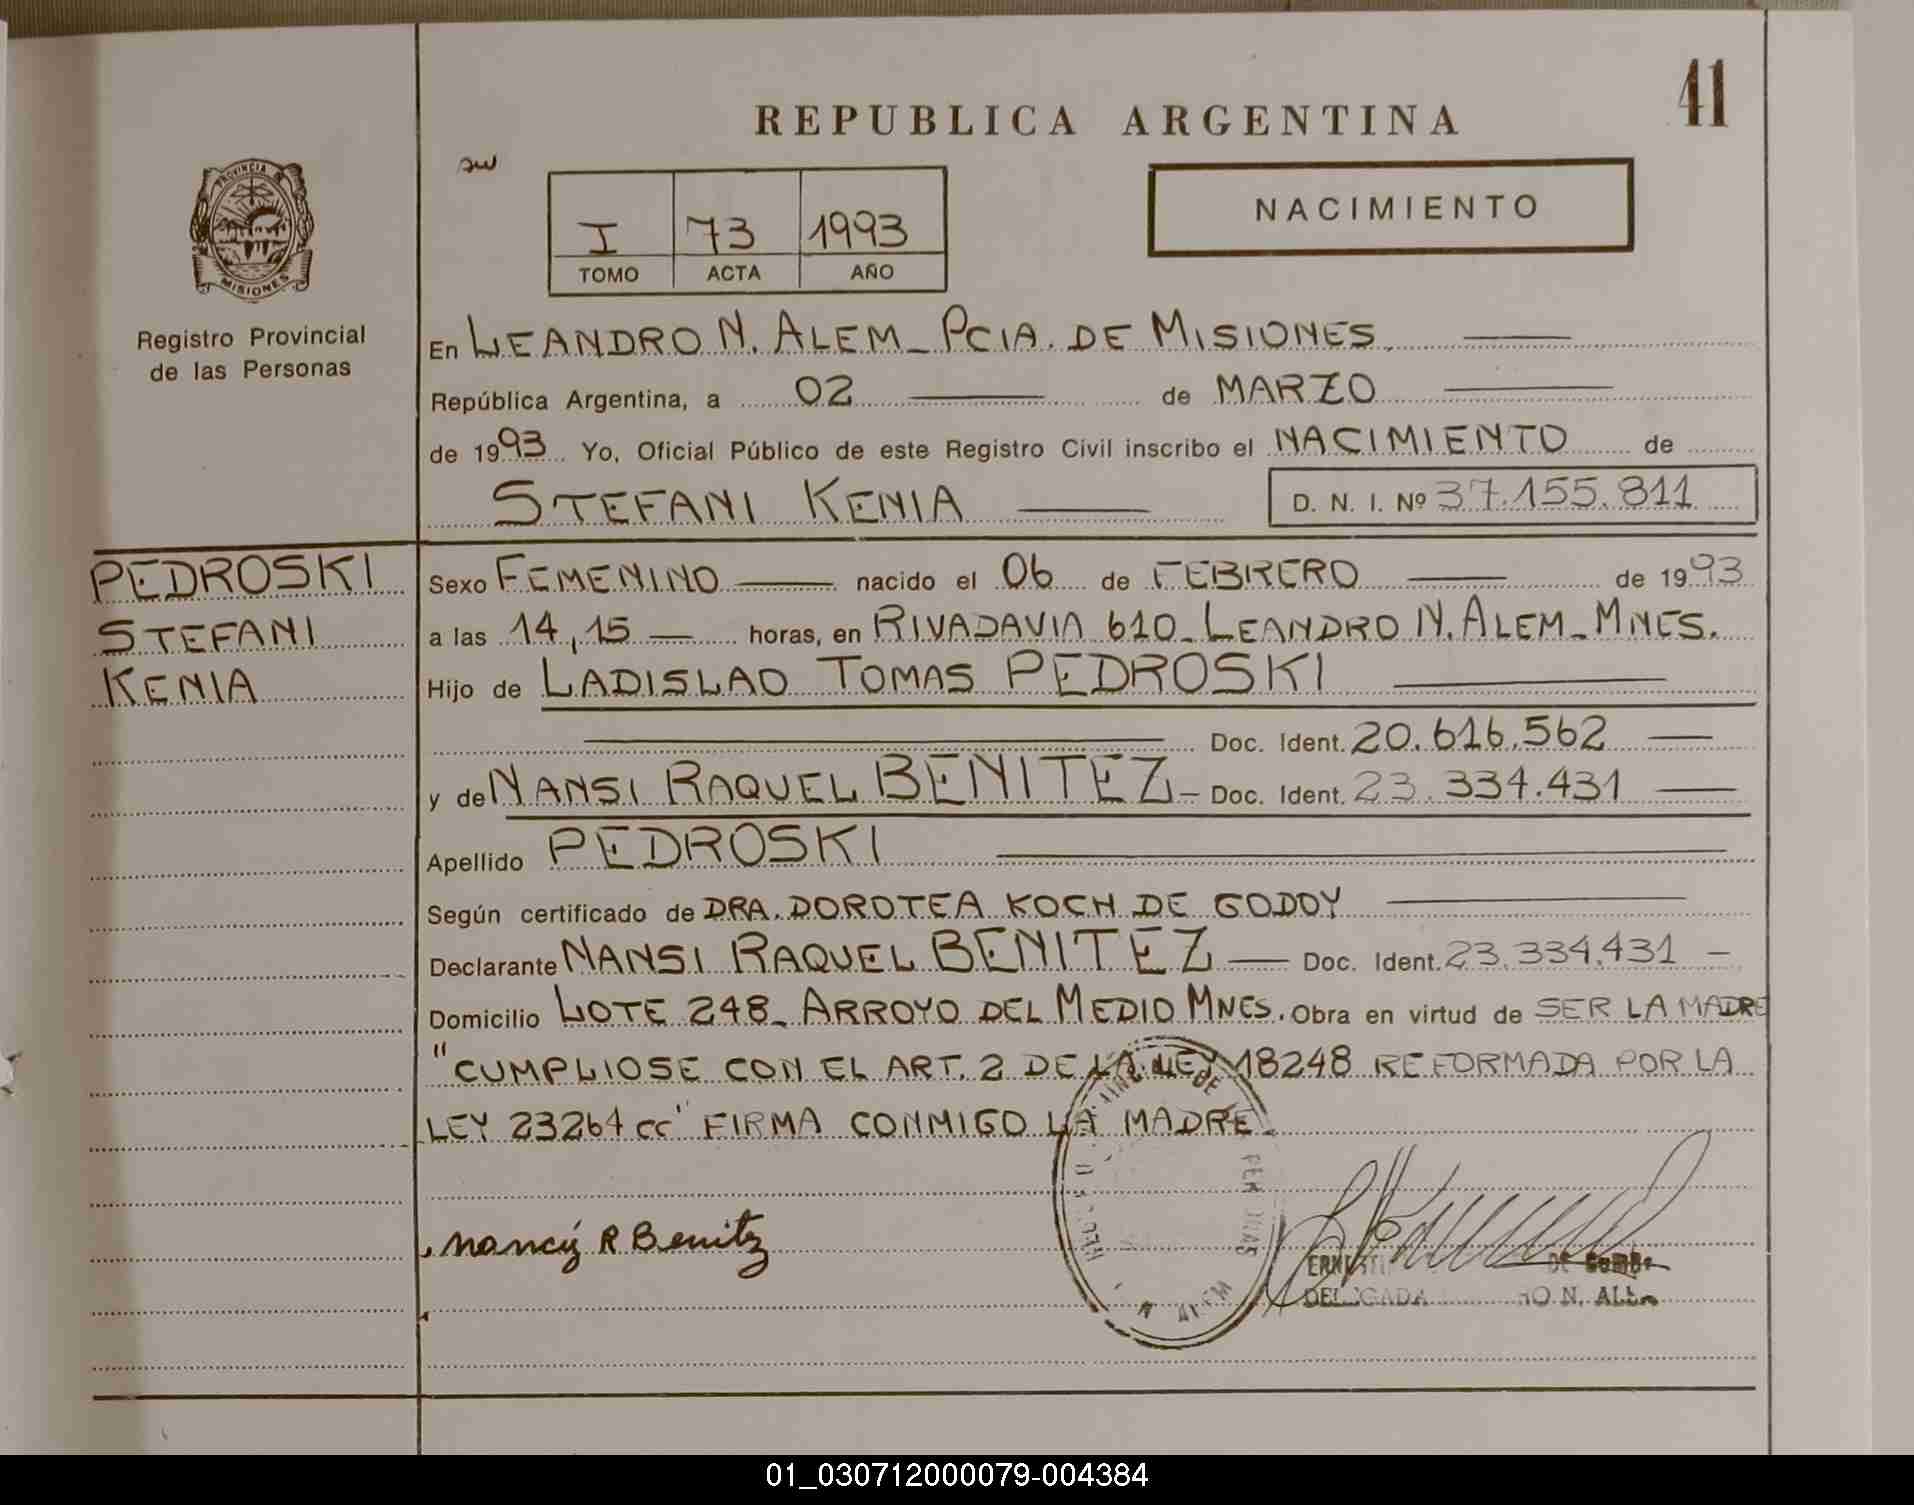 41
REPUBLICA ARGENTINA
PROVINCIA
MISIONES
I 73 1993
TOMO ACTA AÑO
NACIMIENTO
Registro Provincial
de las Personas
En LEANDRO N. ALEM_ PCIA. DE MISIONES.
República Argentina, a 02 de MARZO
de 1993 Yo, Oficial Público de este Registro Civil inscribo el NACIMIENTO de
STEFANI KENIA D. N. I. Nº 37.155.811
PEDROSKI
STEFANI
KENIA
Sexo FEMENINO nacido el 06 de FEBRERO de 1993
a las 14,15 horas, en RIVADAVIA 610_ LEANDRO N. ALEM_ MNES.
Hijo de LADISLAO TOMAS PEDROSKI
Doc. Ident. 20.616.562
y de NANSI RAQUEL BENITEZ Doc. Ident. 23.334.431
Apellido PEDROSKI
Según certificado de DRA. DOROTEA KOCH DE GODOY
Declarante NANSI RAQUEL BENITEZ Doc. Ident. 23.334.431
Domicilio LOTE 248_ ARROYO DEL MEDIO MNES. Obra en virtud de SER LA MADRE
"CUMPLIOSE CON EL ART. 2 DE LA LEY 18248 REFORMADA POR LA
LEY 23264 CC" FIRMA CONMIGO LA MADRE
Nancy R Benitz
N. ALEM
01_030712000079-004384